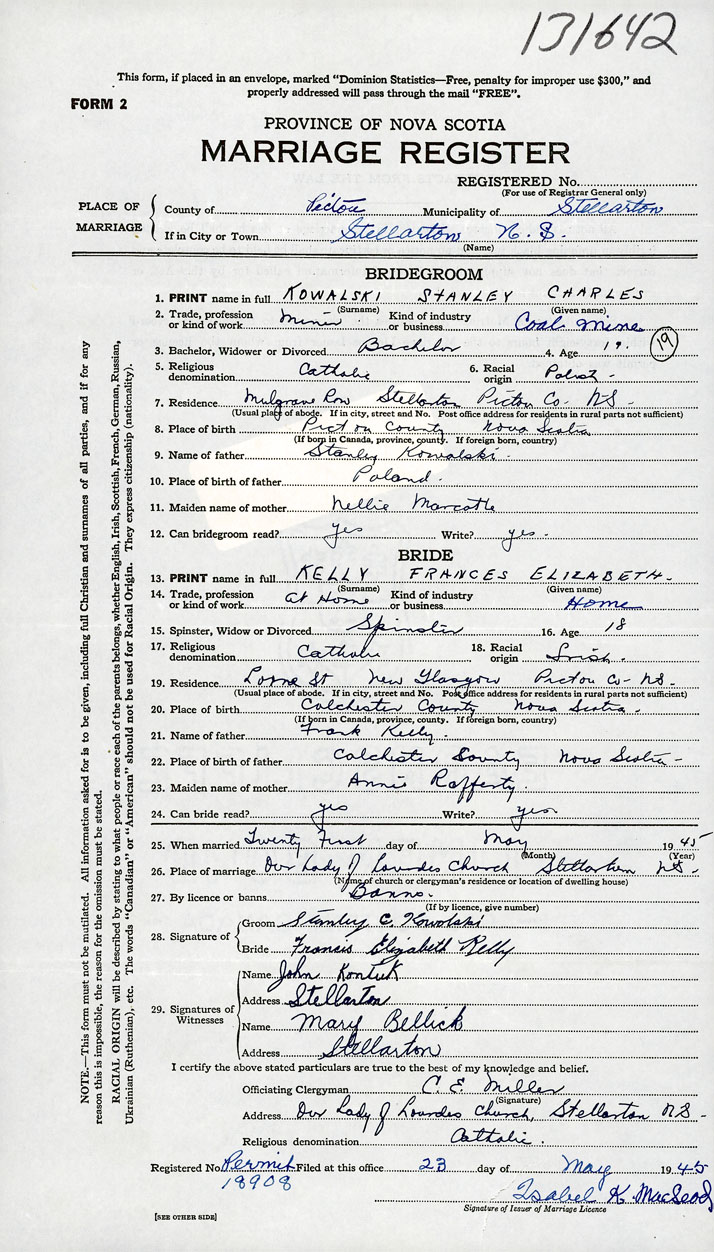 131642
This form, if placed in an envelope, marked "Dominion Statistics—Free, penalty for improper use $300," and
properly addressed will pass through the mail "FREE".
FORM 2
PROVINCE OF NOVA SCOTIA
MARRIAGE REGISTER
REGISTERED No.
(For use of Registrar General only)
PLACE OF MARRIAGE
County of Pictou Municipality of Stellarton
If in City or Town Stellarton N. S.
(Name)
BRIDEGROOM
1. PRINT name in full KOWALSKI STANLEY CHARLES
(Surname) (Given name)
2. Trade, profession or kind of work Miner Kind of industry or business Coal Mine
3. Bachelor, Widower or Divorced Bachelor 4. Age 19. 19
5. Religious denomination Catholic 6. Racial origin Polish.
7. Residence Mulgrave Row Stellarton Pictou Co. NS.
(Usual place of abode. If in city, street and No. Post office address for residents in rural parts not sufficient)
8. Place of birth Pictou County Nova Scotia
(If born in Canada, province, county. If foreign born, country)
9. Name of father Stanley Kowalski.
10. Place of birth of father Poland.
11. Maiden name of mother Nellie
12. Can bridegroom read? yes Write? yes.
BRIDE
13. PRINT name in full KELLY FRANCES ELIZABETH.
(Surname) (Given name)
14. Trade, profession or kind of work At Home Kind of industry or business Home
15. Spinster, Widow or Divorced Spinster 16. Age 18
17. Religious denomination Catholic 18. Racial origin Irish.
19. Residence Lorne St New Glasgow Pictou Co. NS.
(Usual place of abode. If in city, street and No. Post office address for residents in rural parts not sufficient)
20. Place of birth Colchester County Nova Scotia.
(If born in Canada, province, county. If foreign born, country)
21. Name of father Frank Kelly.
22. Place of birth of father Colchester County Nova Scotia -
23. Maiden name of mother Annie Rafferty.
24. Can bride read? yes Write? yes
25. When married Twenty First day of May 1945
(Month) (Year)
26. Place of marriage Our Lady of Lourdes Church Stellarton NS.
(Name of church or clergyman's residence or location of dwelling house)
27. By licence or banns Banns.
(If by licence, give number)
28. Signature of
Groom Stanley C. Kowolski
Bride Francis Elizabeth Kelly
29. Signatures of Witnesses
Name John Kontuk
Address Stellarton
Name Mary Bellick
Address Stellarton
I certify the above stated particulars are true to the best of my knowledge and belief.
Officiating Clergyman C. E. Miller
(Signature)
Address Our Lady of Lourdes Church, Stellarton N.S -
Religious denomination Catholic.
Registered No. Permit 18908 Filed at this office 23 day of May 1945
Isabel K. MacLeod
Signature of Issuer of Marriage Licence
[SEE OTHER SIDE]
NOTE.—This form must not be mutilated. All information asked for is to be given, including full Christian and surnames of all parties, and if for any
reason this is impossible, the reason for the omission must be stated.
RACIAL ORIGIN will be described by stating to what people or race each of the parents belongs, whether English, Irish, Scottish, French, German, Russian,
Ukrainian (Ruthenian), etc. The words "Canadian" or "American" should not be used for Racial Origin. They express citizenship (nationality).